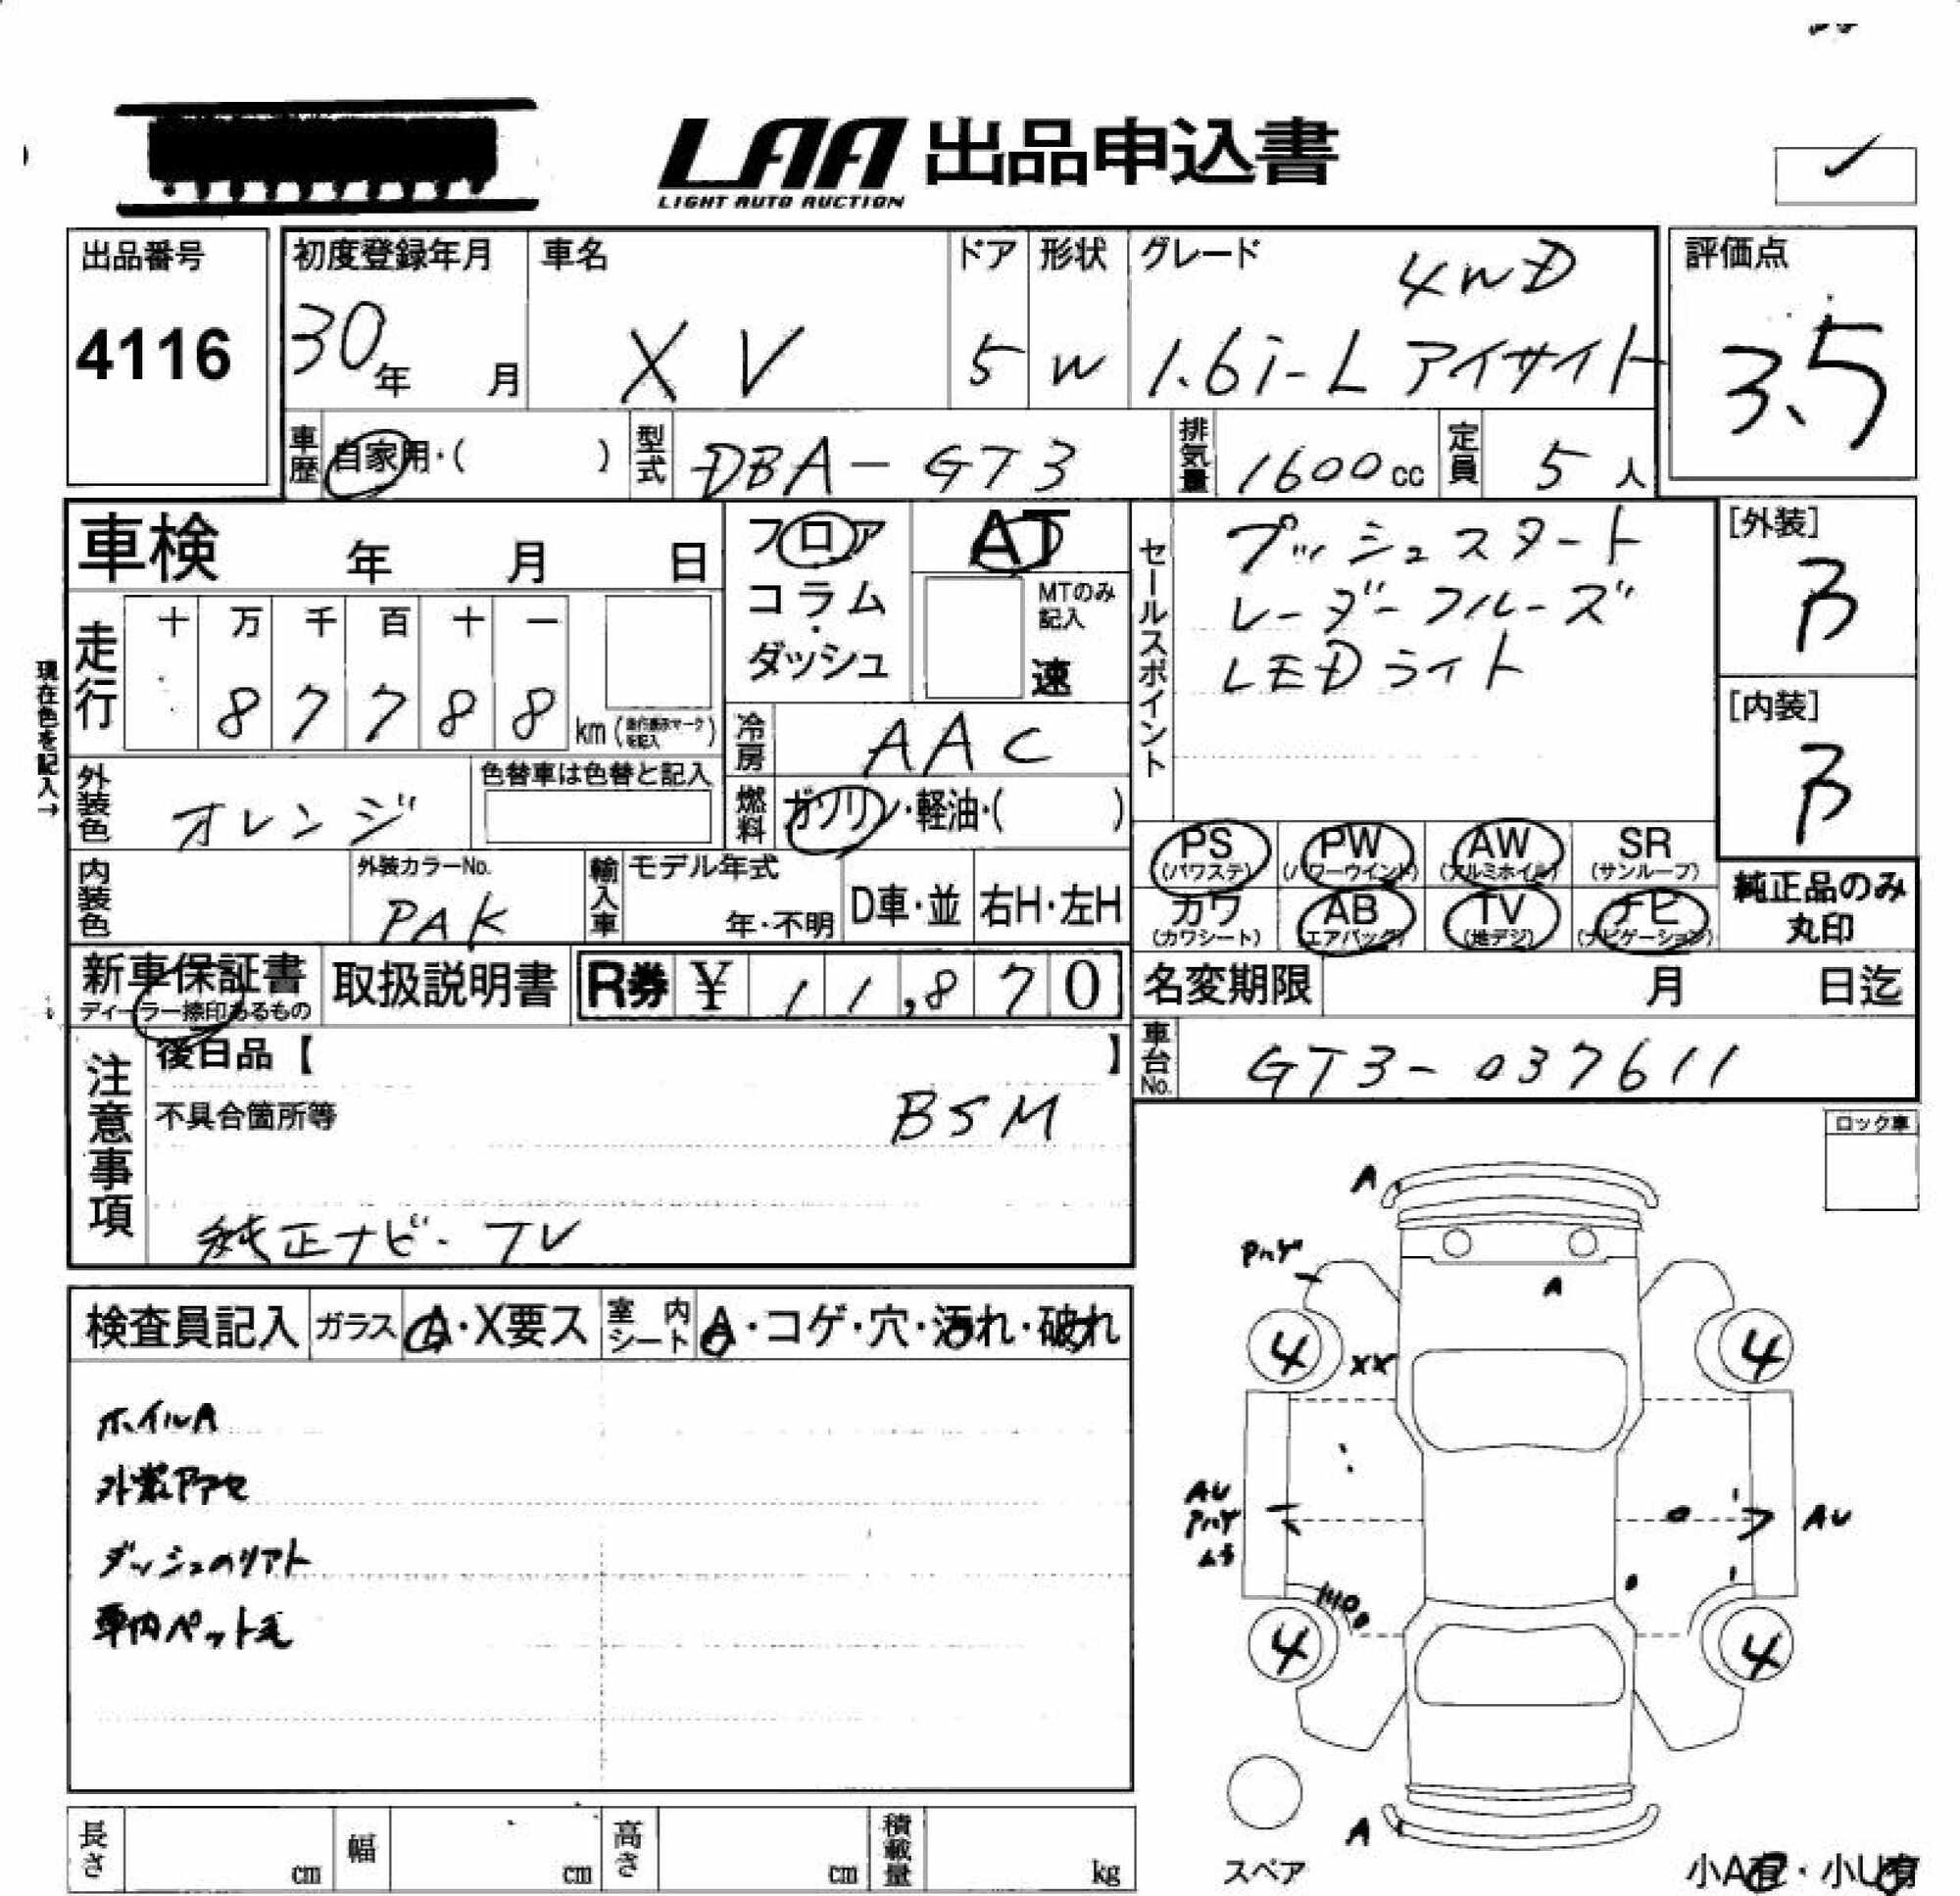 LAA 出品申込書
LIGHT AUTO AUCTION
出品番号
4116
初度登録年月
30年 月
車名
XV
ドア
5
形状
W
グレード
4WD
1.6i-L アイサイト
評価点
3.5
車歴
自家用・( )
型式
DBA-GT3
排気量
1600cc
定員
5人
車検 年 月 日
フロア
コラム
・
ダッシュ
AT
MTのみ
記入
速
セールスポイント
プッシュスタート
レーダークルーズ
LEDライト
[外装]
B
[内装]
B
現在色を記入→
走行
十 万 千 百 十 一
8 7 7 8 8
km ( )
冷房
AAC
外装色
オレンジ
色替車は色替と記入
燃料
ガソリン・軽油・( )
PS
(パワステ)
PW
(パワーウインド)
AW
(アルミホイル)
SR
(サンルーフ)
カワ
(カワシート)
AB
(エアバッグ)
TV
(地デジ)
ナビ
(ナビゲーション)
純正品のみ
丸印
内装色
外装カラーNo.
PAK
輸入車
モデル年式
年・不明
D車・並
右H・左H
新車保証書
ディーラー捺印あるもの
取扱説明書
R券 ¥ 11,870
名変期限 月 日迄
車台No.
GT3-037611
注意事項
後日品【 】
不具合箇所等
BSM
純正ナビ・TV
ロック車
検査員記入
ガラス
A・X要ス
室内
シート
A・コゲ・穴・汚れ・破れ
ホイルA
外装アアセ
ダッシュのリアト
車内ペット毛
A
A
4
4
XX
AU
AU
4
4
A
スペア
小A有・小U有
長さ
cm
幅
cm
高さ
cm
積載量
kg